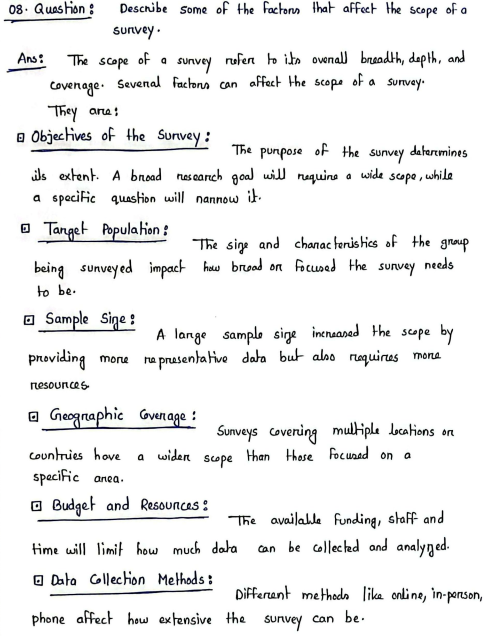 08. Question: Describe some of the factors that affect the scope of a
survey.
Ans: The scope of a survey refer to its overall breadth, depth, and
coverage. Several factors can affect the scope of a survey.
They are:
Objectives of the Survey:
The purpose of the survey determines
its extent. A broad research goal will require a wide scope, while
a specific question will narrow it.
Target Population:
The size and characteristics of the group
being surveyed impact how broad or focused the survey needs
to be.
Sample Size:
A large sample size increased the scope by
providing more representative data but also requires more
resources.
Geographic Coverage:
Surveys covering multiple locations or
countries have a wider scope than those focused on a
specific area.
Budget and Resources:
The available funding, staff and
time will limit how much data can be collected and analyzed.
Data Collection Methods:
Different methods like online, in-person,
phone affect how extensive the survey can be.